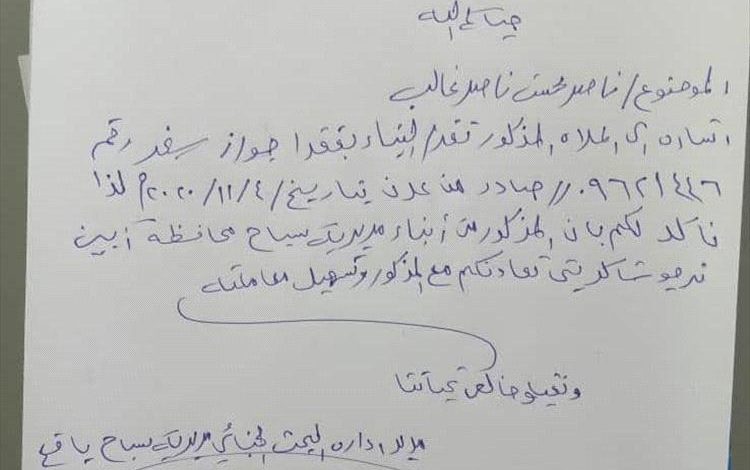 حياكم الله
الموضوع/ ناصر محسن ناصر غالب
اشاره الى اعلاه المذكور تقدم الينا بفقدا جواز سفر رقم
٠٩٦٢١٤٤٦ // صادر من عدن بتاريخ/ ٤/ ١١/ ٢٠٢٠م لذا
ناكد لكم بان المذكور من أبناء مديرية سباح محافظة أبين
نرجو شاكرين تعاونكم مع المذكور وتسهيل معاملته
وتقبلو خالص تحياتنا
مدير اداره البحث الجنائي مديرية سباح يافع